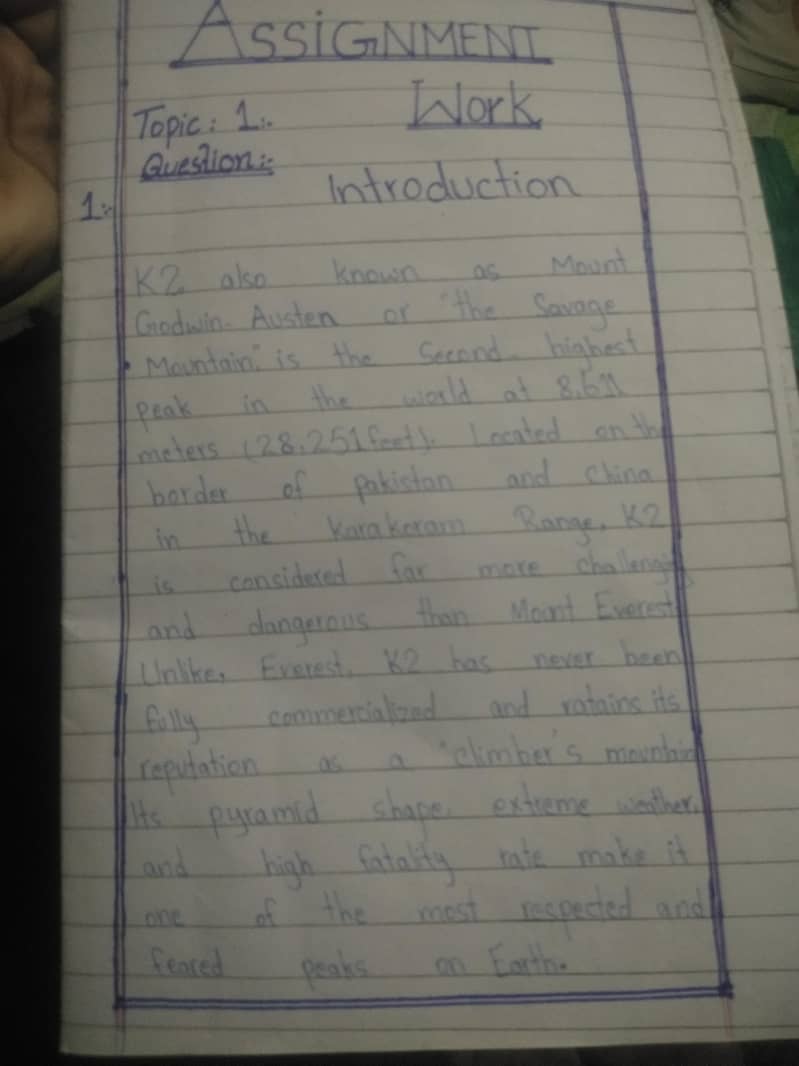 ASSIGNMENT
Work
Topic: 1:.
Question:-
1:-
Introduction
K2, also known as Mount
Godwin-Austen or "the Savage
Mountain," is the Second-highest
peak in the world at 8,611
meters (28,251 feet). Located on the
border of pakistan and China
in the Karakoram Range, K2
is considered far more challenging
and dangerous than Mount Everest.
Unlike, Everest, K2 has never been
fully commercialized and ratains its
reputation as a "climber's mountain
Its pyramid shape, extreme weather,
and high fatality rate make it
one of the most respected and
feared peaks on Earth.